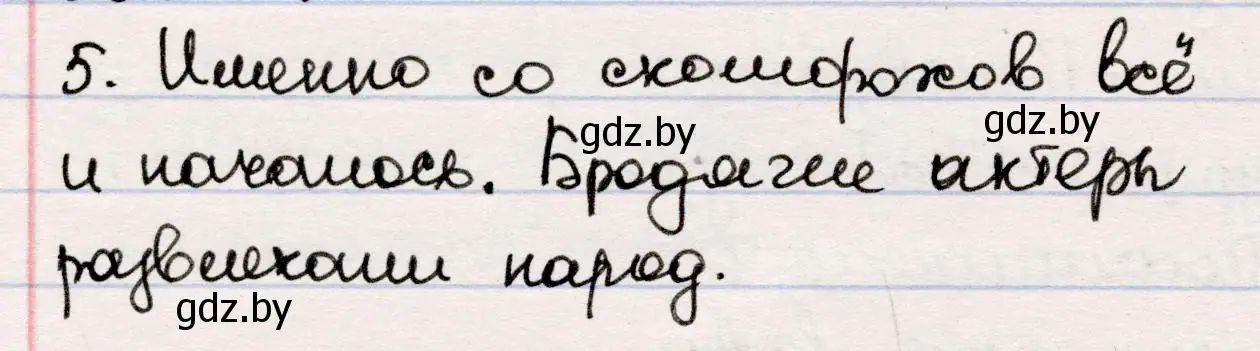 5. Именно со скоморохов всё
gdz.by
gdz.by
и началось. Бродячие актеры
развлекали народ.
gdz.by